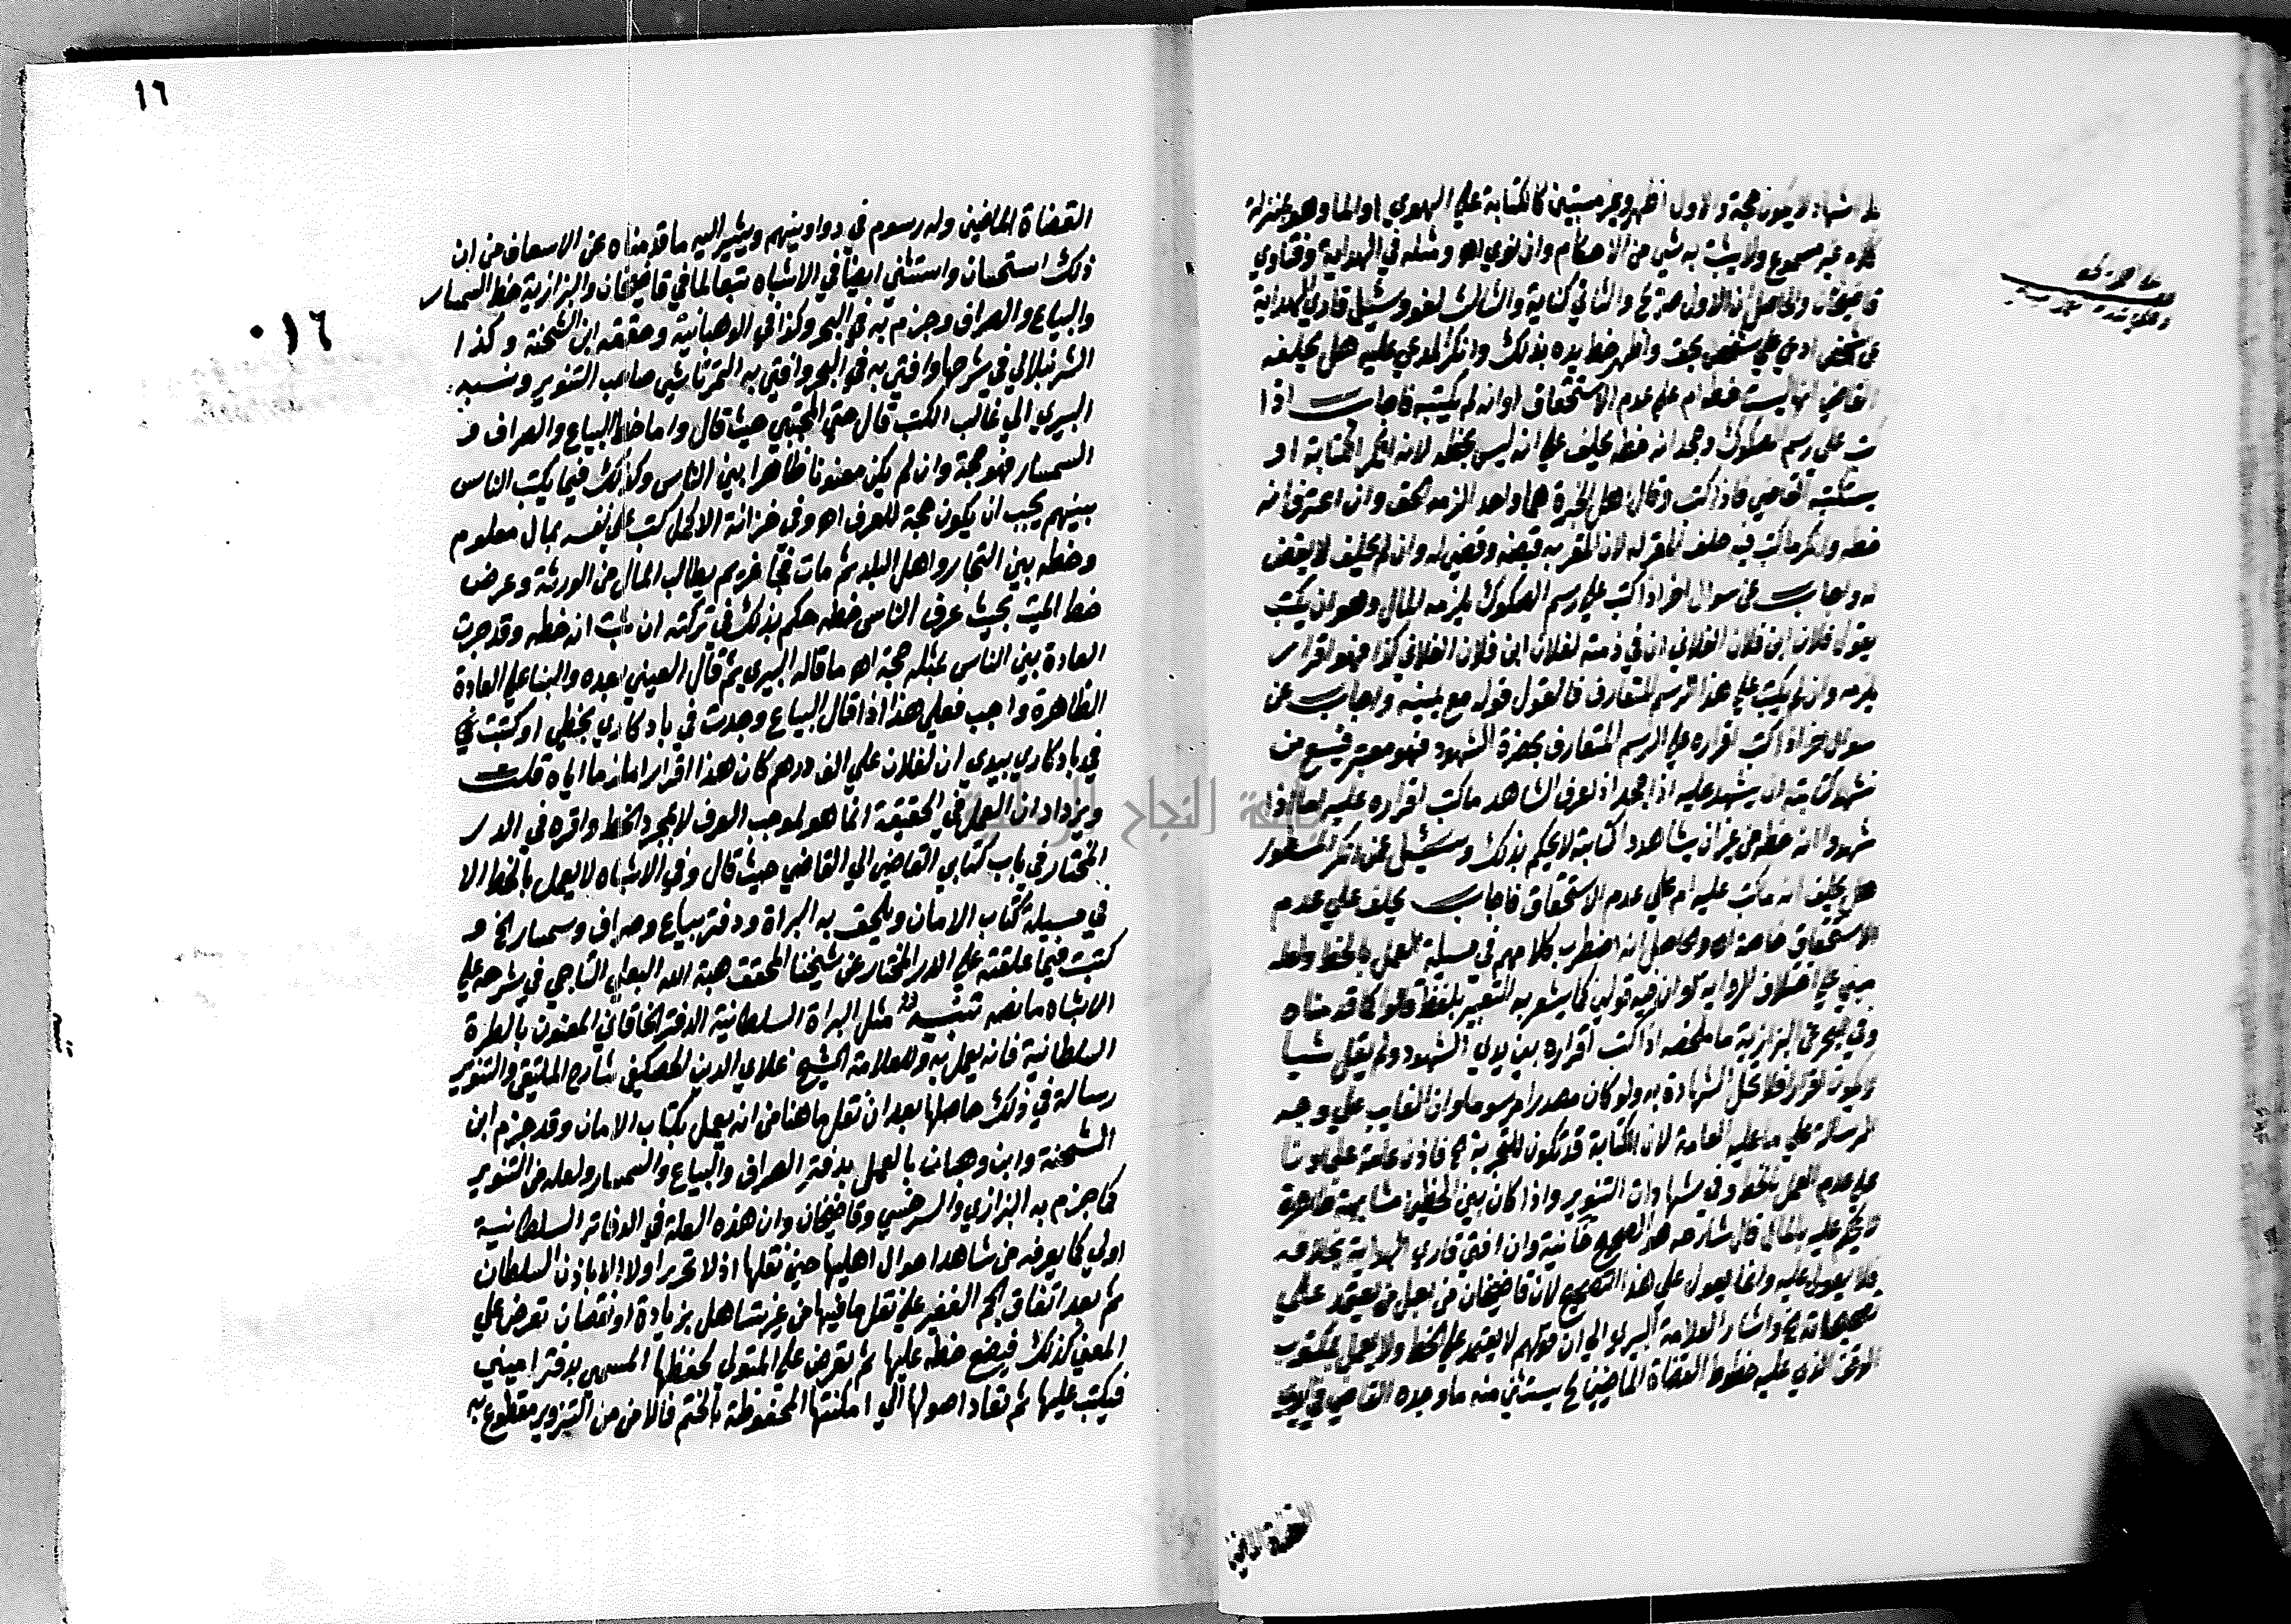 بلا اشهاد لا يكون حجة والاول اظهر وغير مستبين كالكتابة علي الهوي او الما وهو بمنزلة
كلام غير مسموع ولا يثبت به شي من الاحكام وان نوي اهو ومثله في الهداية وفتاوي
قاضيخان والحاصل ان الاول صريح والثاني كناية والثالث لغو وسئل قاري الهداية
عن شخص ادعي علي شخص بحق واظهر خط يده بذلك وانكر المدعي عليه هل يحلفه
القاضي انها ليست خطه ام علي عدم الاستحقاق او انه لم يكتبه فاجاب اذا
كتب علي رسم الصكوك وجحد انه خطه يحلف علي انه ليس بخطه لانه انكر الكتابة او
يستكتبه القاضي فاذا كتب وقال اهل الخبرة هما واحد الزمه الحق وان اعترف انه
خطه وانكر ما كتب فيه حلف المقر له ان المقر به قبضه وقضي له وان لم يحلف لا يقضي
له واجاب عن سوال اخر اذا كتب علي رسم الصكوك يلزمه المال وهو ان يكتب
يقول فلان ابن فلان الفلاني ان في ذمته لفلان ابن فلان الفلاني كذا فهو اقرار
يلزمه وان لم يكتب علي هذا الرسم المتعارف فالقول قوله مع يمينه واجاب عن
سوال اخر اذا كتب اقراره علي الرسم المتعارف بحضرة الشهود فهو معتبر فيسع من
شهد كتابته ان يشهد عليه اذا جحد اذا عرف الشاهد ما كتب اقراره عليه اما اذا
شهدوا انه خطه من غير ان يشاهدوا كتابته لا يحكم بذلك وسئيل عمن انكر المسطور
هل يحلف انه ما كتب عليه ام علي عدم الاستحقاق فاجاب يحلف علي عدم
الاستحقاق خاصة اهو والحاصل انه اضطرب كلامهم في مسيلة العمل بالخط ولعله
مبني علي اختلاف الرواية او ان فيه قولين كما يشعر به التعبير بلفظ قالوا كما قدمناه
وفي البحر عن البزازية ما ملخصه اذا كتب اقراره بين يدي الشهود ولم يقل شيا
لا يكون اقرارا فلا تحل الشهادة به ولو كان مصدرا مرسوما وان لغايب علي وجه
الرسالة علي ما عليه العامة لان الكتابة قد تكون للتجربة الخ فاذن عامة علماونا
علي عدم العمل بالخط وفي شهادات التنوير واذا كان بين الخطين مشابهة ظاهرة
لا يحكم عليه بالمال قال شارحه هو الصحيح خانية وان افتي قاري الهداية بخلافه
فلا يعول عليه وانما يعول علي هذا التصحيح لان قاضيخان من اجل من يعتمد علي
تصحيحاته الخ واشار العلامة البيري الي ان قولهم لا يعتمد علي الخط ولا يعمل بمكتوب
الوقف الذي عليه خطوط القضاة الماضيين الخ يستثني منه ما وجده القاضي في ايدي
القضاة الماضين
١٦
٠١٦
القضاة الماضين وله رسوم في دواوينهم ويشير اليه ما قدمناه عن الاسعاف من ان
ذلك استحسان واستثني ايضا في الاشباه تبعا لما في قاضيخان والبزازية خط السمسار
والبياع والصراف وجزم به في البحر وكذا في الوهبانية وحققه ابن الشحنة وكذا
الشرنبلالي في شرحها وافتي به في البحر وافتي به التمرتاشي صاحب التنوير ونسبه
البيري الي غالب الكتب قال حتي المجتبي حيث قال واما خط البياع والصراف و
السمسار فهو حجة وان لم يكن معنونا ظاهرا بين الناس وكذلك فيما يكتب الناس
بينهم يجب ان يكون حجة للعرف اهو وفي خزانة الاكمل كتب علي نفسه بمال معلوم
وخطه بين التجار واهل البلد ثم مات فجا غريم يطالب المال من الورثة وعرض
خط الميت بحيث عرف الناس خطه حكم بذلك في تركته ان ثبت انه خطه وقد جرت
العادة بين الناس بمثله حجة اهو ما قاله البيري ثم قال العيني بعده والبنا علي العادة
الظاهرة واجب فعلي هذا اذا قال البياع وجدت في يادكاري بخطي او كتبت في
في يادكاري بيدي ان لفلان علي الف درهم كان هذا اقرارا ملزما اياه قلت
ويزداد ان العمل في الحقيقة انما هو لموجب العرف لا بمجرد الخط واقره في الدر
المختار في باب كتابي القاضي الي القاضي حيث قال وفي الاشباه لا يعمل بالخط الا
في مسيلة كتاب الامان ويلحق به البراة ودفتر بياع وصراف وسمسار الخ و
كتبت فيما علقته علي الدر المختار عن شيخنا المحقق هبة الله البعلي التاجي في شرحه علي
الاشباه ما نصه تنبيه مثل البراة السلطانية الدفتر الخاقاني المعنون بالطرة
السلطانية فانه يعمل به وللعلامة الشيخ علاي الدين الحصكفي شارح الملتقي والتنوير
رسالة في ذلك حاصلها بعد ان نقل ما هنا من انه يعمل بكتاب الامان وقد جزم ابن
الشحنة وابن وهبان بالعمل بدفتر الصراف والبياع والسمسار ولعله من التنوير
كما جزم به البزازي والسرخسي وقاضيخان وان هذه العلة في الدفاتر السلطانية
اولي كما يعرفه من شاهد احوال اهاليها حين نقلها اذ لا تحرر اولا الا باذن السلطان
ثم بعد اتفاق الجم الغفير علي نقل ما فيها من غير تساهل بزيادة او نقصان تعرض علي
المعين لذلك فيضع خطه عليها ثم تعرض علي المتولي لحفظها المسمي بدفتر اميني
فيكتب عليها ثم تعاد اصولها الي امكنتها المحفوظة بالختم فالامن من التزوير مقطوع به
جامعة النجاح الوطنية